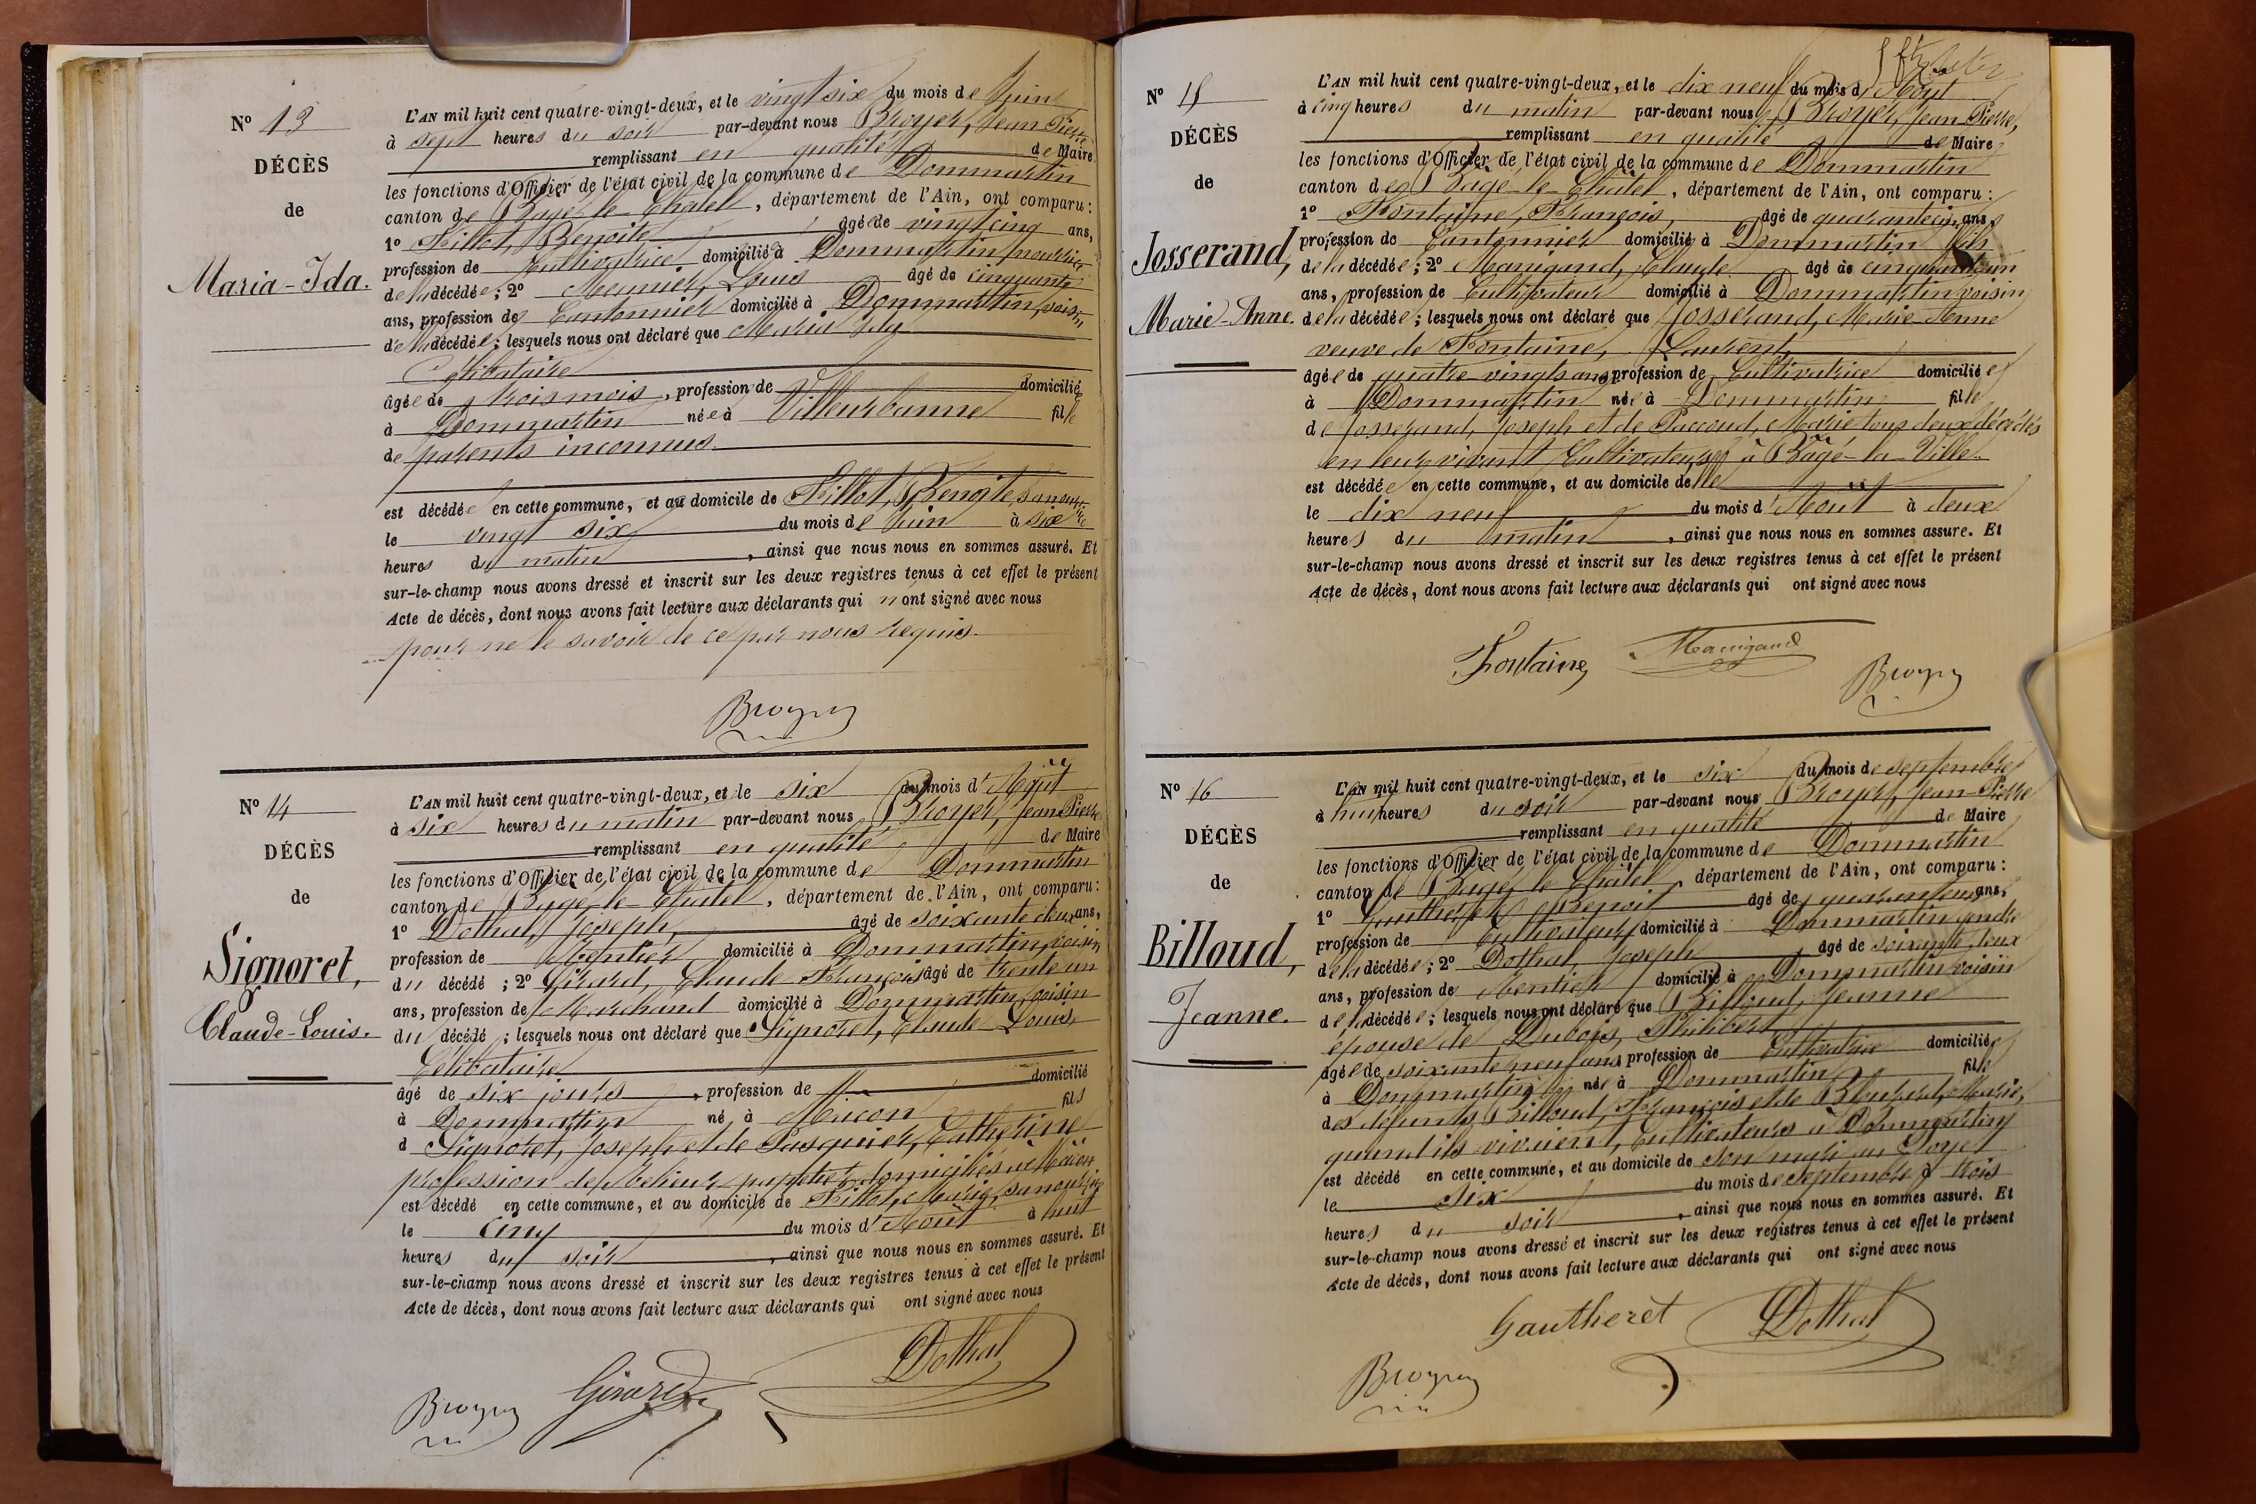 Nº 13
DÉCÈS
de
Maria-Ida.
L'AN mil huit cent quatre-vingt-deux, et le vingt six du mois de Juin
à sept heures du soir par-devant nous Broyer, Jean Pierre
remplissant en qualité de Maire
les fonctions d'Officier de l'état civil de la commune de Dommartin
canton de Bagé-le-Châtel, département de l'Ain, ont comparu :
1º Benoite âgée de vingt cinq ans,
profession de Cultivatrice domiciliée à Dommartin nourrice
de la décédée ; 2º Meunier, Louis âgé de cinquante
ans, profession de Cantonnier domicilié à Dommartin, voisin
de la décédée ; lesquels nous ont déclaré que Maria Ida
Célibataire
âgée de trois mois, profession de domiciliée
à Dommartin née à Villeurbanne fille
de parents inconnus.
est décédée en cette commune, et au domicile de Benoite sa nourrice
le vingt six du mois de Juin à six
heures du matin, ainsi que nous nous en sommes assuré. Et
sur-le-champ nous avons dressé et inscrit sur les deux registres tenus à cet effet le présent
Acte de décès, dont nous avons fait lecture aux déclarants qui n'ont signé avec nous
pour ne le savoir de ce par nous requis.
Broyer
Nº 14
DÉCÈS
de
Signoret,
Claude-Louis.
L'AN mil huit cent quatre-vingt-deux, et le six du mois d'Août
à six heures du matin par-devant nous Broyer, Jean Pierre
remplissant en qualité de Maire
les fonctions d'Officier de l'état civil de la commune de Dommartin
canton de Bagé-le-Châtel, département de l'Ain, ont comparu :
1º Dothal, Joseph, âgé de soixante deux ans,
profession de Rentier domicilié à Dommartin, voisin
du décédé ; 2º Girard, Claude François âgé de trente un
ans, profession de Marchand domicilié à Dommartin, voisin
du décédé ; lesquels nous ont déclaré que Signoret, Claude Louis
Célibataire
âgé de six jours, profession de domicilié
à Dommartin né à Mâcon fils
d Signoret, Joseph et de Pasquier, Catherine
profession de domiciliés à Mâcon
est décédé en cette commune, et au domicile de Marie, sa nourrice
le cinq du mois d'Août à huit
heures du soir, ainsi que nous nous en sommes assuré. Et
sur-le-champ nous avons dressé et inscrit sur les deux registres tenus à cet effet le présent
Acte de décès, dont nous avons fait lecture aux déclarants qui ont signé avec nous
Broyer Girard Dothal
Nº 15
DÉCÈS
de
Josserand,
Marie-Anne.
L'AN mil huit cent quatre-vingt-deux, et le dix neuf du mois d'Août
à cinq heures du matin par-devant nous Broyer, Jean Pierre,
remplissant en qualité de Maire
les fonctions d'Officier de l'état civil de la commune de Dommartin
canton de Bagé-le-Châtel, département de l'Ain, ont comparu :
1º Fontaine, François, âgé de quarante cinq ans,
profession de Cantonnier domicilié à Dommartin fils
de la décédée ; 2º Manigand, Claude âgé de cinquante un
ans, profession de Cultivateur domicilié à Dommartin voisin
de la décédée ; lesquels nous ont déclaré que Josserand, Marie-Anne
veuve de Fontaine, Laurent
âgée de quatre vingts ans, profession de Cultivatrice domiciliée
à Dommartin née à Dommartin fille
de Josserand, Joseph et de Paccoud, Marie tous deux décédés
en leur vivant Cultivateurs à Bâgé-la-Ville
est décédée en cette commune, et au domicile de elle
le dix neuf du mois d'Août à deux
heures du matin, ainsi que nous nous en sommes assuré. Et
sur-le-champ nous avons dressé et inscrit sur les deux registres tenus à cet effet le présent
Acte de décès, dont nous avons fait lecture aux déclarants qui ont signé avec nous
Fontaine Manigand
Broyer
Nº 16
DÉCÈS
de
Billoud,
Jeanne.
L'AN mil huit cent quatre-vingt-deux, et le six du mois de septembre
à huit heures du soir par-devant nous Broyer, Jean-Pierre
remplissant en qualité de Maire
les fonctions d'Officier de l'état civil de la commune de Dommartin
canton de Bagé-le-Châtel, département de l'Ain, ont comparu :
1º Gautheret, Benoit âgé de ans,
profession de Cultivateur domicilié à Dommartin gendre
de la décédée ; 2º Dothal, Joseph âgé de soixante deux
ans, profession de Rentier domicilié à Dommartin voisin
de la décédée ; lesquels nous ont déclaré que Billoud, Jeanne
épouse de Dubois, Philibert
âgée de soixante neuf ans profession de Cultivatrice domiciliée
à Dommartin née à Dommartin fille
des défunts Billoud, François et de Marie,
quand ils vivaient, Cultivateurs à Dommartin
est décédé en cette commune, et au domicile de son mari au
le six du mois de septembre à trois
heures du soir, ainsi que nous nous en sommes assuré. Et
sur-le-champ nous avons dressé et inscrit sur les deux registres tenus à cet effet le présent
Acte de décès, dont nous avons fait lecture aux déclarants qui ont signé avec nous
Gautheret Dothal
Broyer